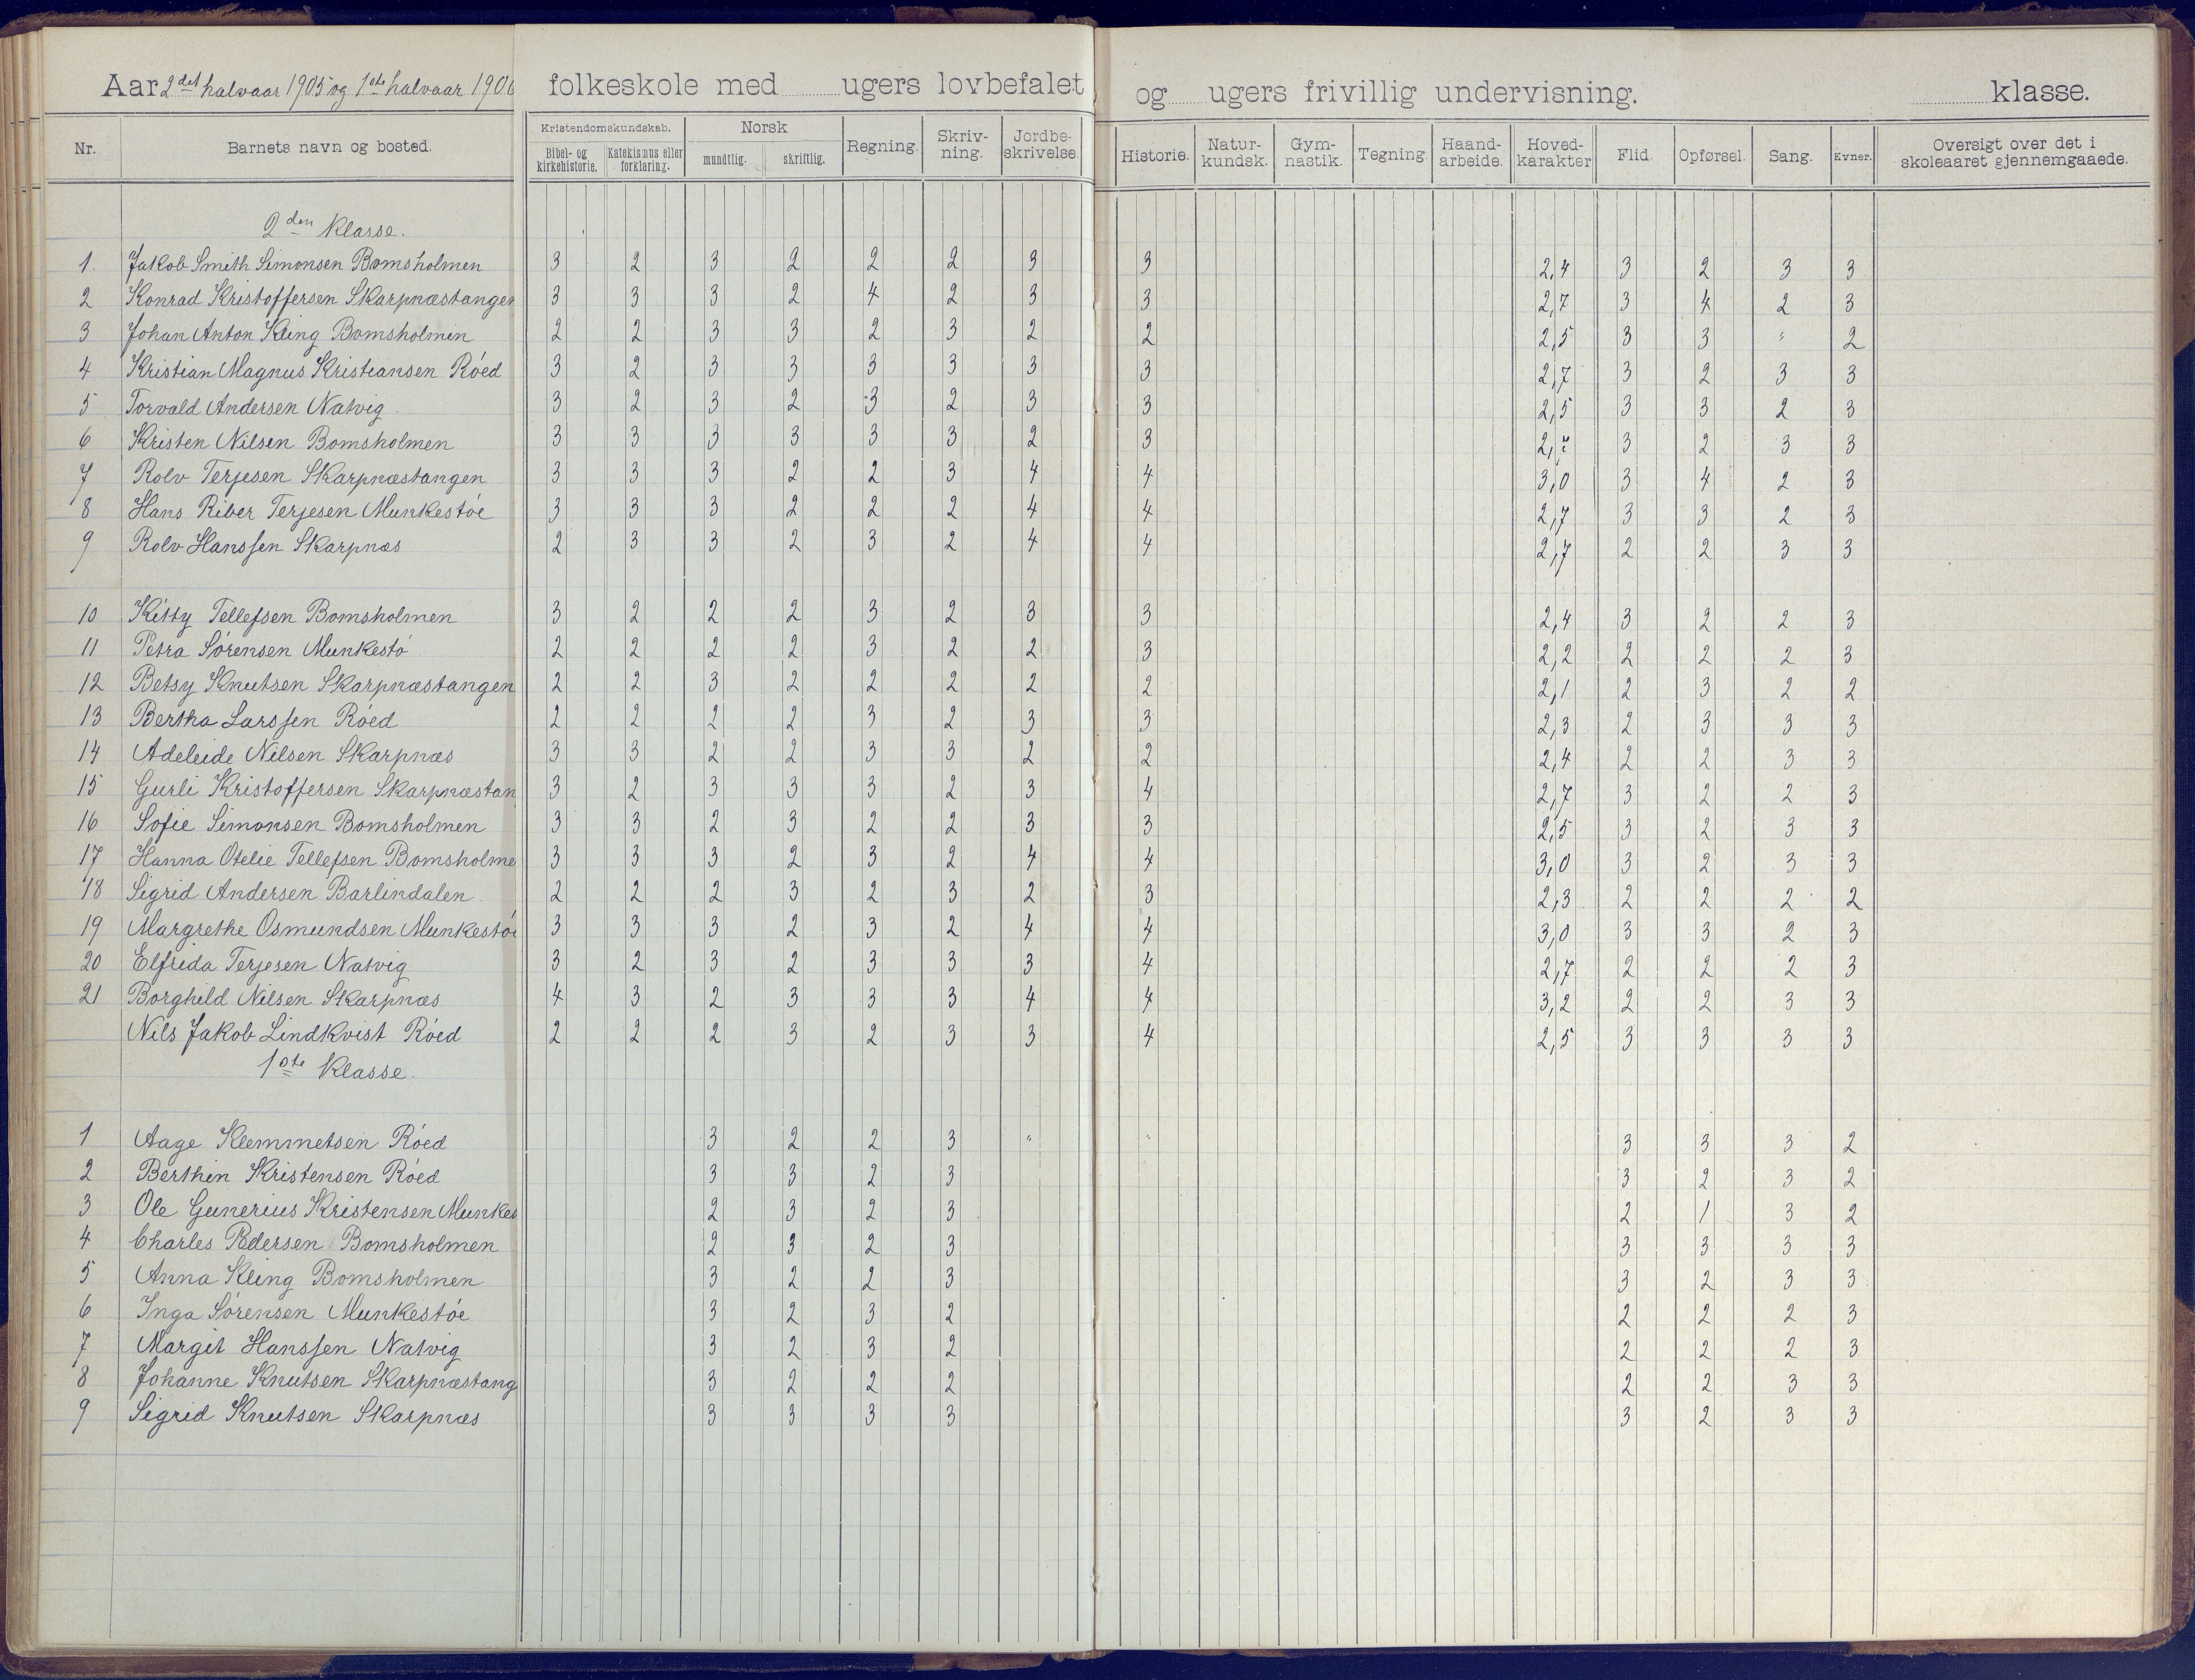 Aar 2det halvaar 1905 og 1ste halvaar 190 folkeskole med ugers lovbefalet og ugers frivillig undervisning. klasse.
Nr. Barnets navn og bosted. Kristendomskundskab. Bibel- og kirkehistorie. Katekismus eller forklaring. Norsk mundtlig. skriftlig. Regning. Skriv-ning. Jordbe-skrivelse. Historie. Natur-kundsk. Gym-nastik. Tegning. Haand-arbeide. Hoved-karakter Flid. Opførsel. Sang. Evner. Oversigt over det i skoleaaret gjennemgaaede.
2den Klasse.
1. Jakob Smith Simonsen Bomsholmen 3 2 3 2 2 2 3 3 2,4 3 2 3 3
2 Konrad Kristoffersen Skarpnæstangen 3 3 3 2 4 2 3 3 2,7 3 4 2 3
3 Johan Anton Kling Bomsholmen 2 2 3 3 2 3 2 2 2,5 3 3 " 2
4 Kristian Magnus Kristiansen Róed 3 2 3 3 3 3 3 3 2,7 3 2 3 3
5 Torvald Andersen Natvig. 3 2 3 2 3 2 3 3 2,5 3 3 2 3
6 Kristen Nilsen Bomsholmen 3 3 3 3 3 3 2 3 2,7 3 2 3 3
7 Rolv Terjesen Skarpnæstangen 3 3 3 2 2 3 4 4 3,0 3 4 2 3
8 Hans Riber Terjesen Munkestóe 3 3 3 2 2 2 4 4 2,7 3 3 2 3
9 Rolv Hanssen Skarpnæs 2 3 3 2 3 2 4 4 2,7 2 2 3 3
10 Kitty Tellefsen Bomsholmen 3 2 2 2 3 2 3 3 2,4 3 2 2 3
11 Petra Sórensen Munkestó 2 2 2 2 3 2 2 3 2,2 2 2 2 3
12 Betsy Knutsen Skarpnæstangen 2 2 3 2 2 2 2 2 2,1 2 3 2 2
13 Bertha Larssen Róed 2 2 2 2 3 2 3 3 2,3 2 3 3 3
14 Adeleide Nilsen Skarpnæs 3 3 2 2 3 3 2 2 2,4 2 2 3 3
15 Gurli Kristoffersen Skarpnæstan 3 2 3 3 3 2 3 4 2,7 3 2 2 3
16 Sofie Simonsen Bomsholmen 3 3 2 3 2 2 3 3 2,5 3 2 3 3
17 Hanna Otelie Tellefsen Bomsholme 3 3 3 2 3 2 4 4 3,0 3 2 3 3
18 Sigrid Andersen Barlindalen 2 2 2 3 2 3 2 3 2,3 2 2 2 2
19 Margrethe Osmundsen Munkestóe 3 3 3 2 3 2 4 4 3,0 3 3 2 3
20 Elfrida Terjesen Natvig 3 2 3 2 3 3 3 4 2,7 2 2 2 3
21 Borghild Nilsen Skarpnæs 4 3 2 3 3 3 4 4 3,2 2 2 3 3
Nils Jakob Lindkvist Róed 2 2 2 3 2 3 3 4 2,5 3 3 3 3
1ste Klasse.
1 Aage Klemmetsen Róed 3 2 2 3 " " 3 3 3 2
2 Berthin Kristensen Róed 3 3 2 3 3 2 3 2
3 Ole Gunerius Kristensen Munkes 2 3 2 3 2 1 3 2
4 Charles Pedersen Bomsholmen 2 3 2 3 3 3 3 3
5 Anna Kling Bomsholmen 3 2 2 3 3 2 3 3
6 Inga Sórensen Munkestóe 3 2 3 2 2 2 2 3
7 Margit Hanssen Natvig 3 2 3 2 2 2 2 3
8 Johanne Knutsen Skarpnæstang 3 2 2 2 2 2 3 3
9 Sigrid Knutsen Skarpnæs 3 3 3 3 3 2 3 3